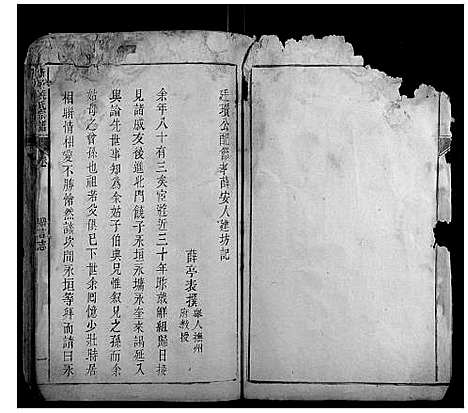 廷瓚公配節孝薛安人建坊記
薛亭表撰舉人撫州府教授
余年八十有三矣宦遊近三十年昨歲解組歸日接
見諸戚友後進北門饒子永墉永奎來謁延入
與論先世事知為余姑子伯與兄惟叙兄之孫而余
姑母之曾孫也祖若父俱已下世余回憶少壯時居
相聯情相愛不勝愴然談次間永垣等拜而請曰永